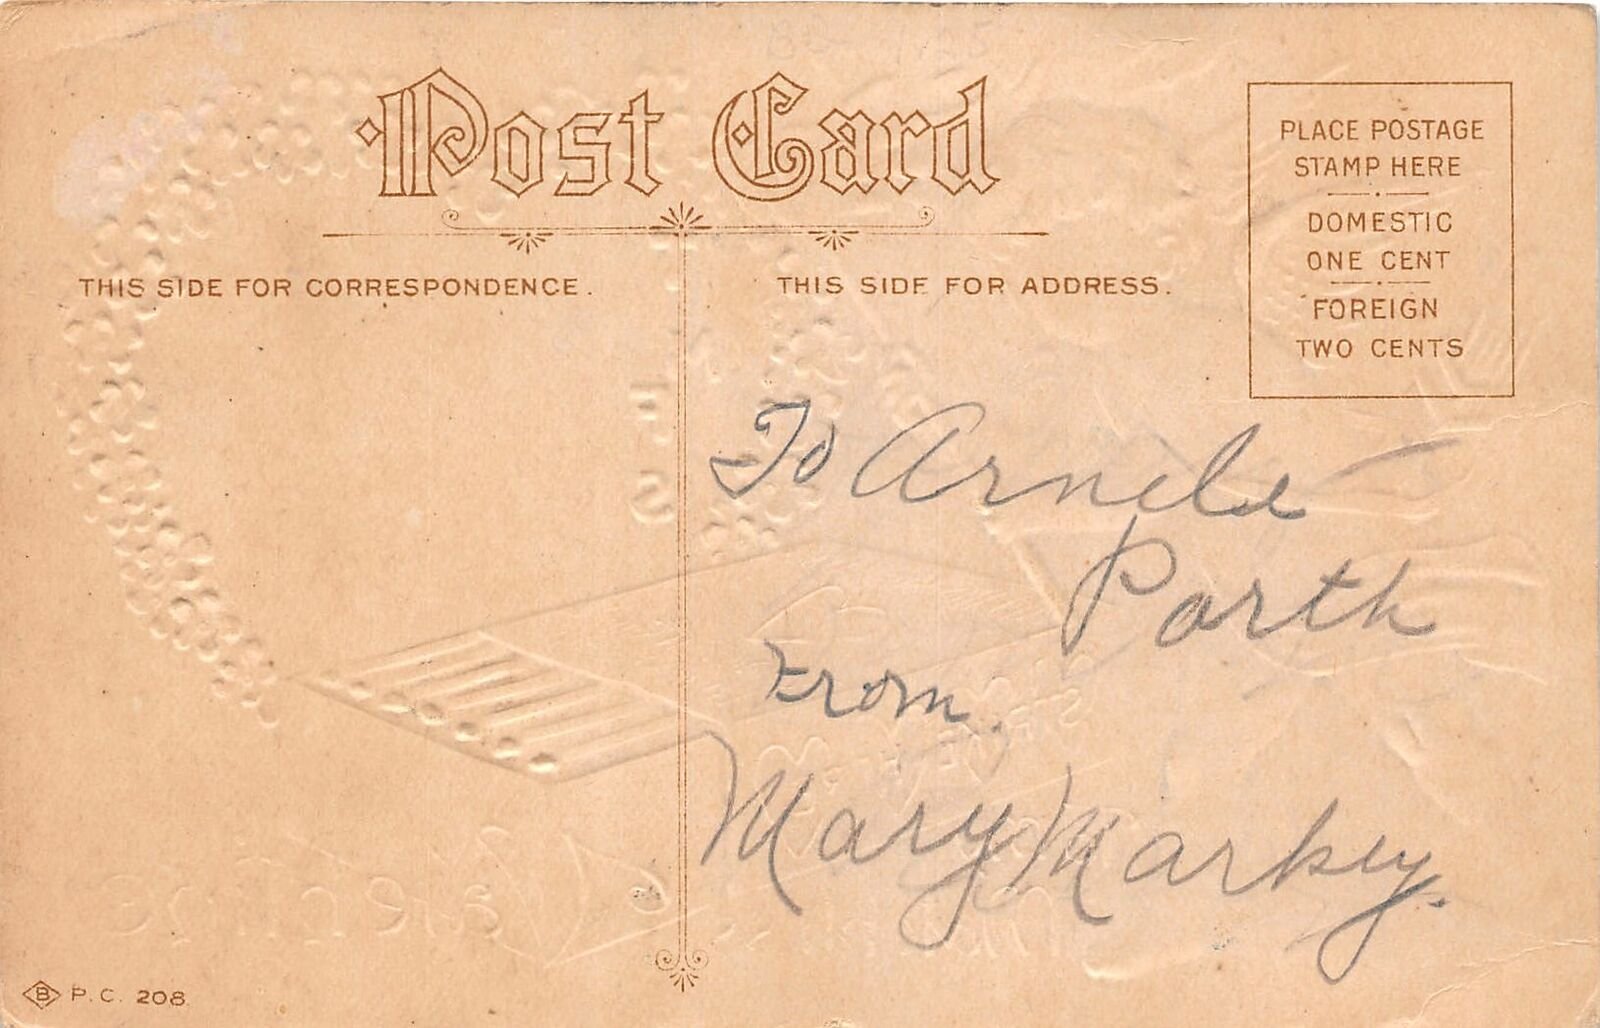 Post Card
THIS SIDE FOR CORRESPONDENCE.
THIS SIDE FOR ADDRESS.
PLACE POSTAGE
STAMP HERE
DOMESTIC
ONE CENT
FOREIGN
TWO CENTS
To Arnele
Parth
From.
Mary Markey.
B P.C. 208